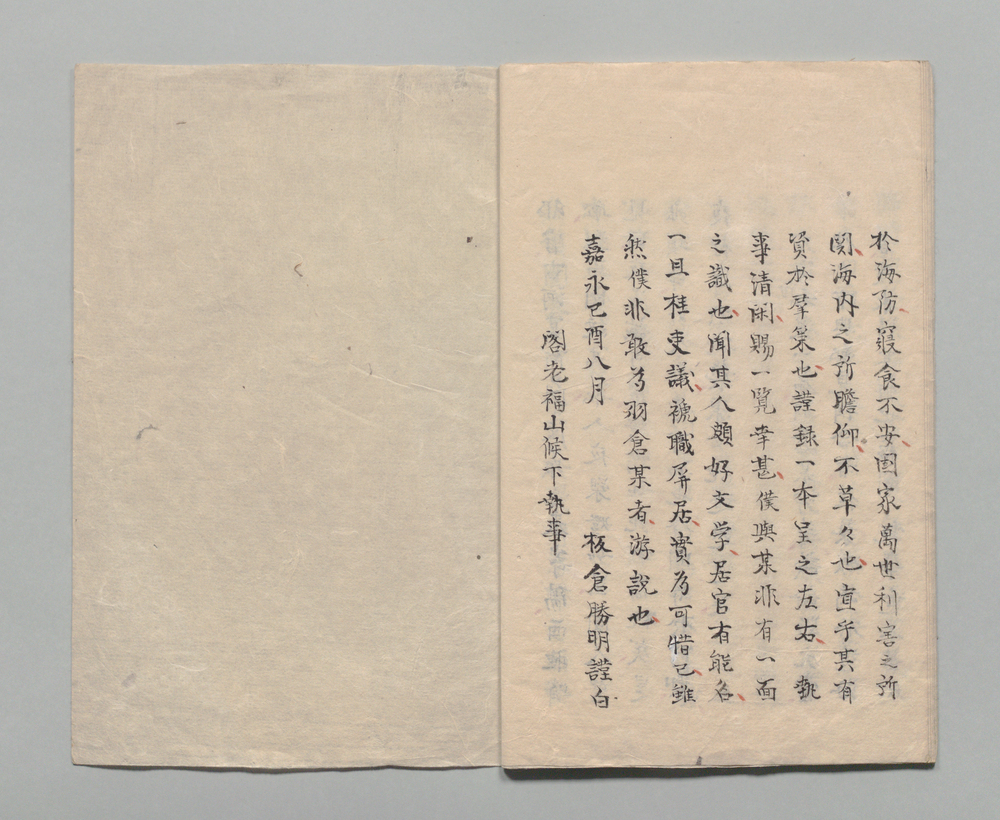 於海防寝食不安国家萬世利害之所
関海内之所瞻仰不草々也宜乎其有
資於羣策也謹録一本呈之左右執
事清閑賜一覧幸甚僕與某非有一面
之識也聞其人頗好文学居官有能名
一旦桂吏議褫職屏居實為可惜已雖
然僕非敢為羽倉某者游説也
嘉永己酉八月　板倉勝明謹白
閣老福山候下執事